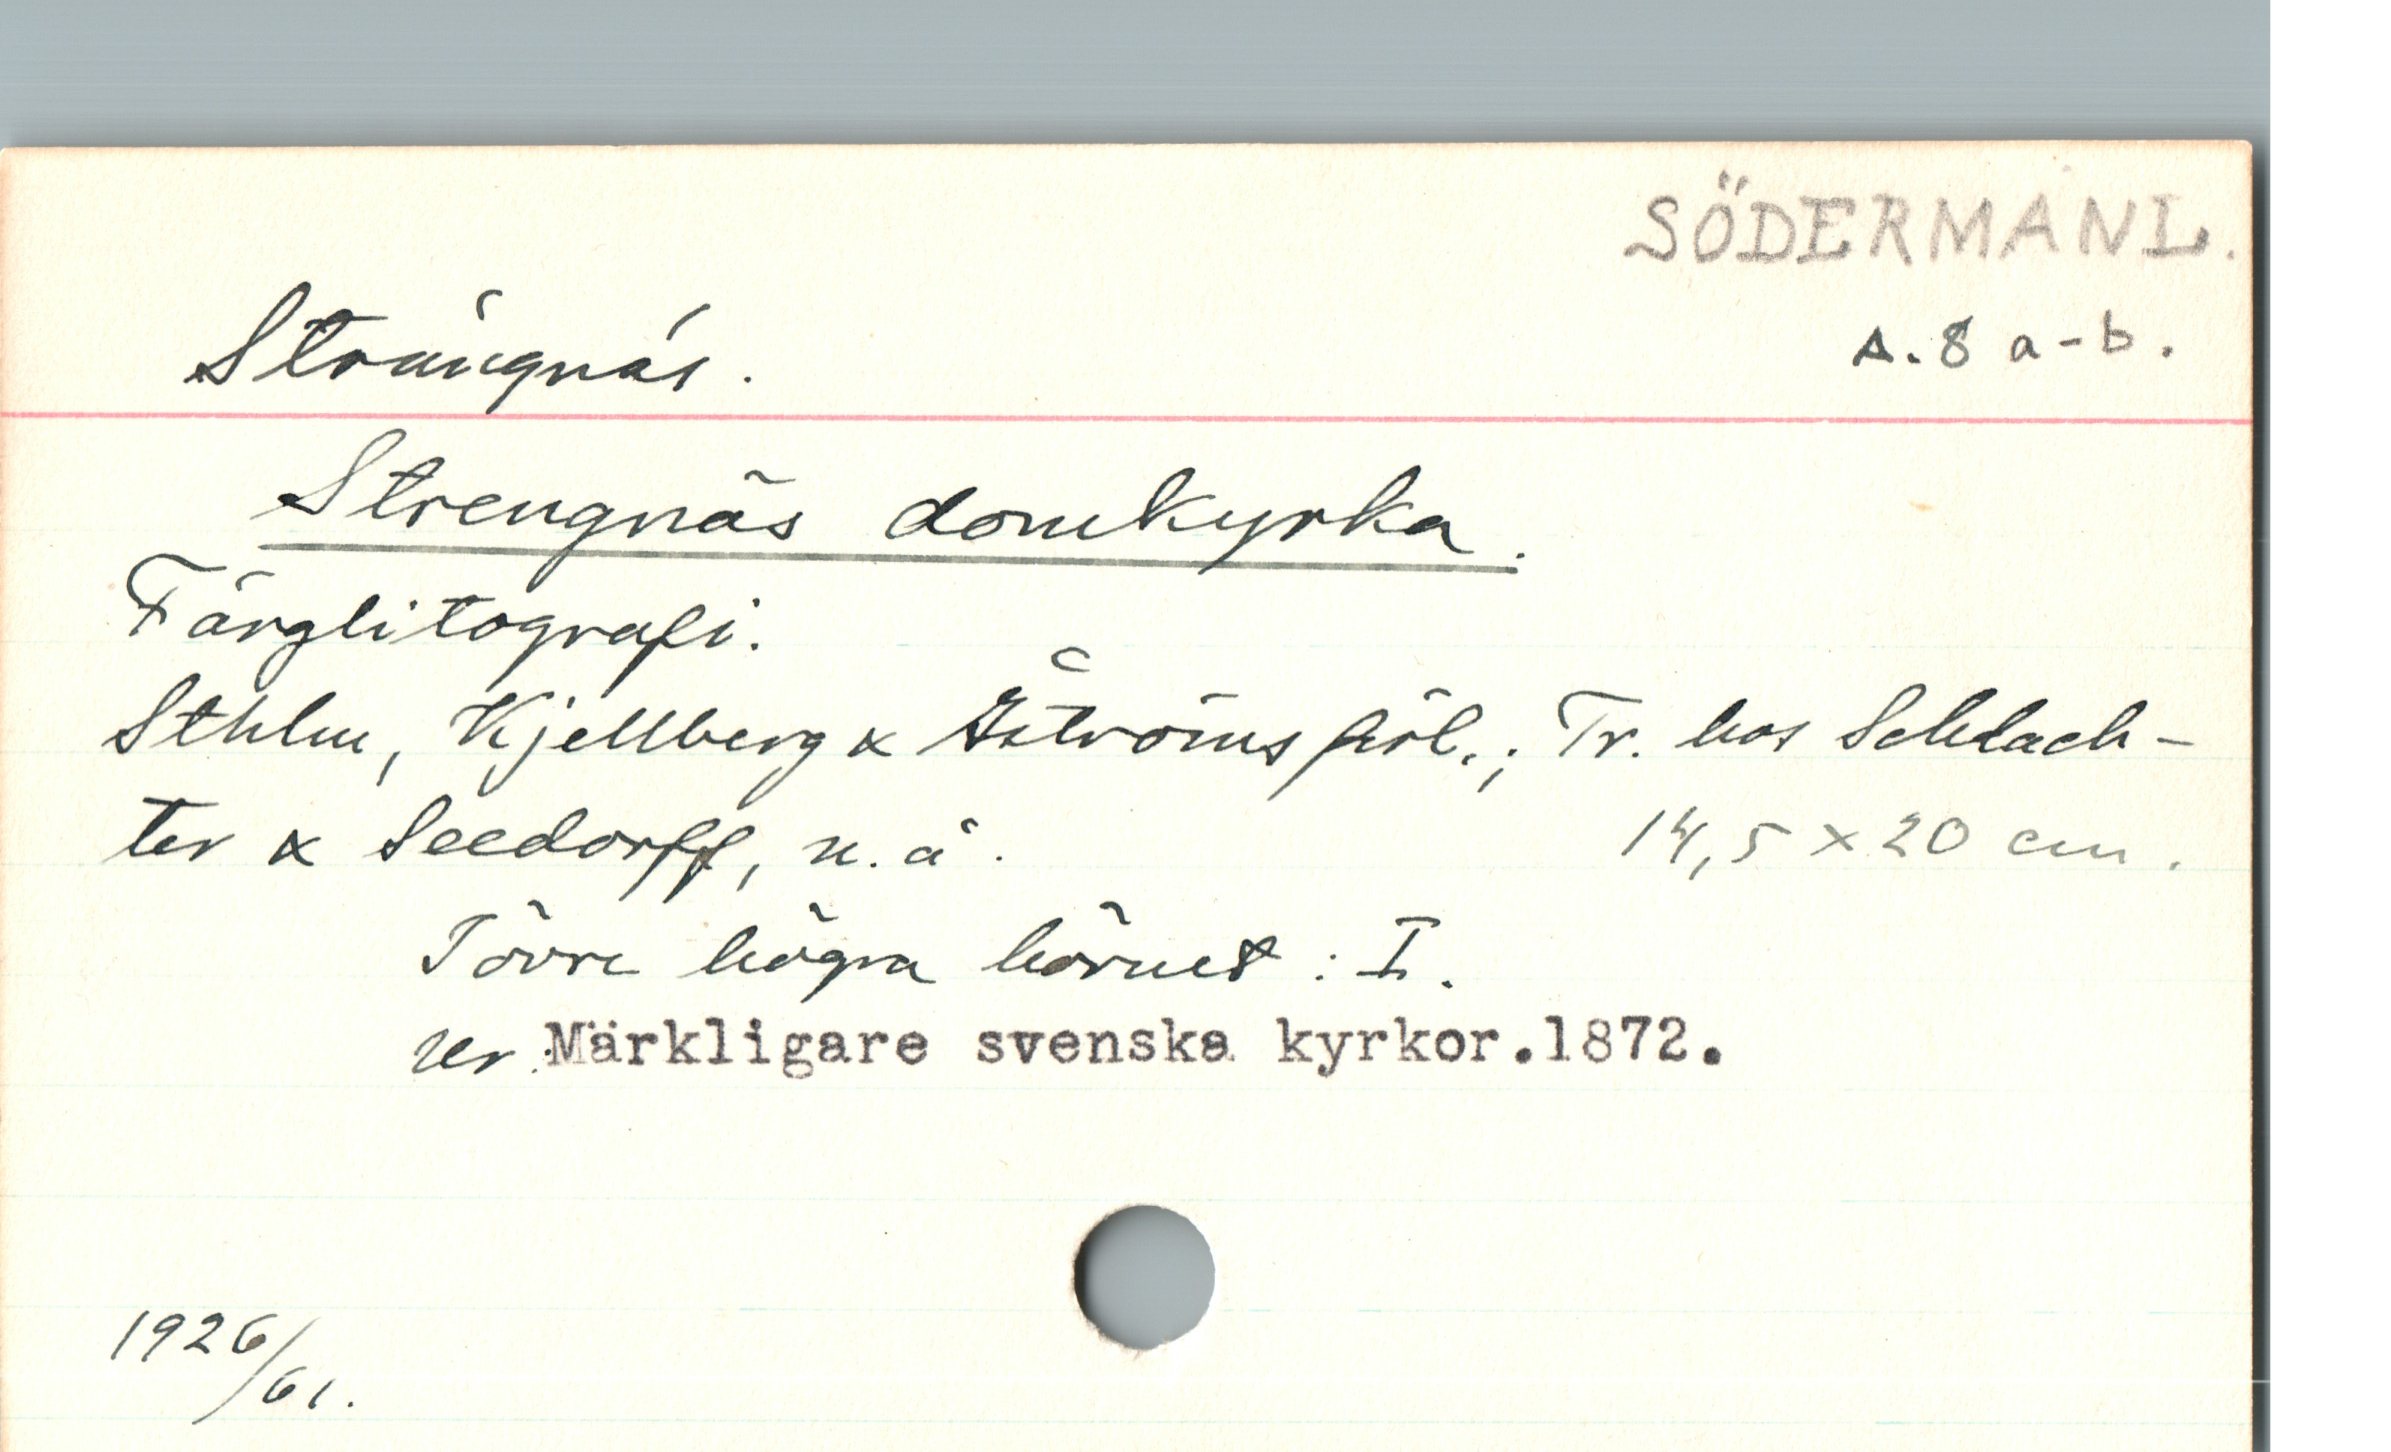 SÖDERMANL.
A. 8 a-b.
Strängnäs.
Strengnäs domkyrka.
Färglitografi.
Sthlm, Kjellberg & Åströms förl.; Tr. hos Schlach-
ter & Seedorff, u. å.
14,5 × 20 cm.
I övre högra hörnet: I.
ur: Märkligare svenska kyrkor.1872.
1926/61.